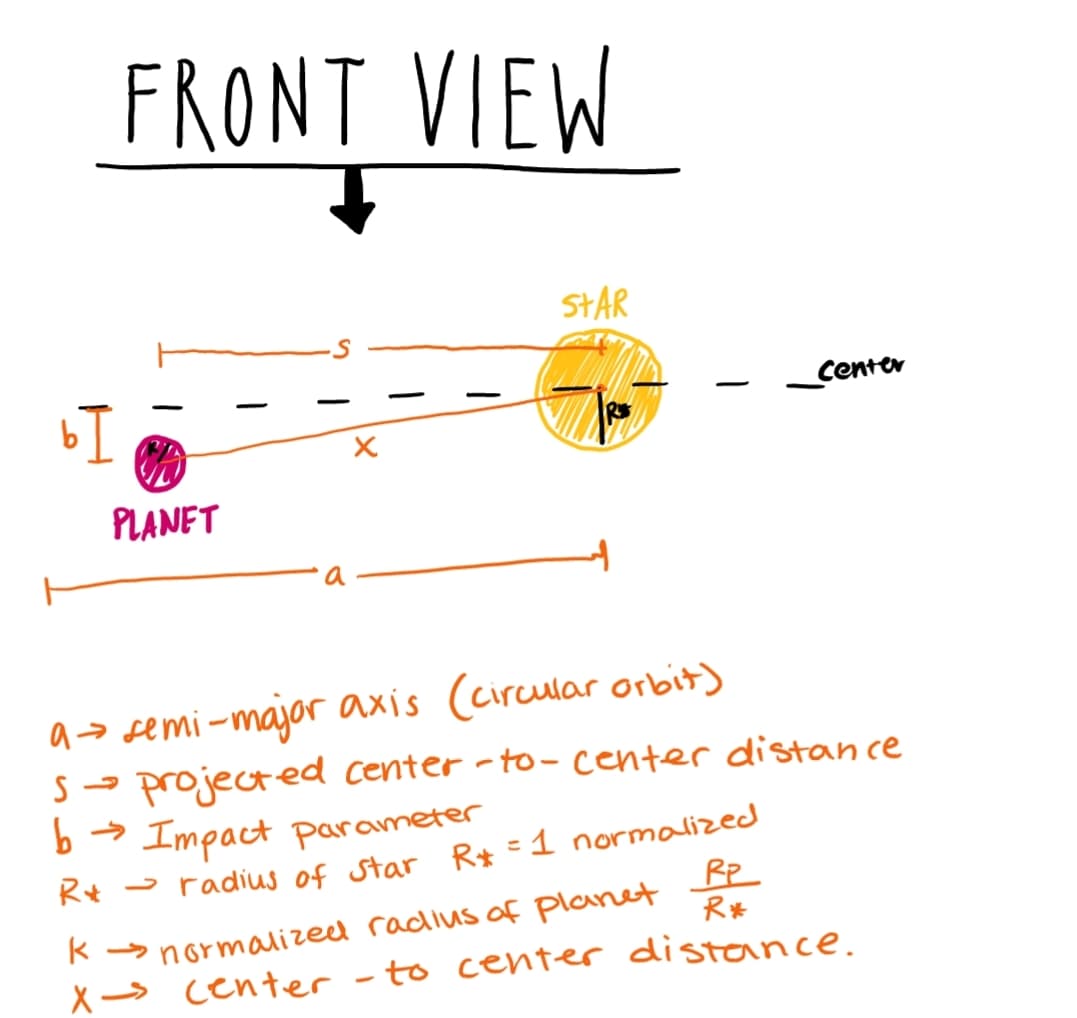 FRONT VIEW
STAR
s
center
b
R*
x
PLANET
a
a → semi-major axis (circular orbit)
s → projected center-to-center distance
b → Impact parameter
R* → radius of star R* = 1 normalized
k → normalized radius of planet Rp/R*
x → center-to center distance.